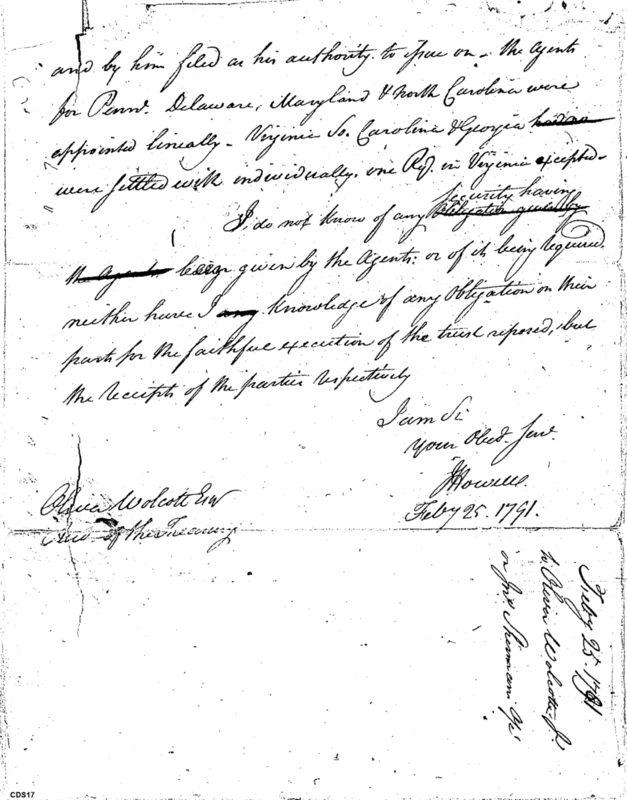 and by him filed as his authority. to Issue on – the Agents
for Pennᵃ. Delaware, Maryland & North Carolina were
appointed lineally – Virginia So. Carolina & Georgia
were settled with individually. one Regᵗ. in Virginia excepted –
security having
I do not know of any Obligation given by
the Agents been given by the Agents. or of its being required.
neither have I any knowledge of any Obligation on their
parts for the faithful execution of the trust reposed, but
the receipts of the parties respectively
I am Sir
Your Obedᵗ. Servᵗ.
JHowell
Feby 25. 1791.
Oliver Wolcott Esqʳ
Audʳ of the Treasury
Feby 25. 1791
to Oliver Wolcott Jʳ
on Jnᵒ. Sherman
CDS17